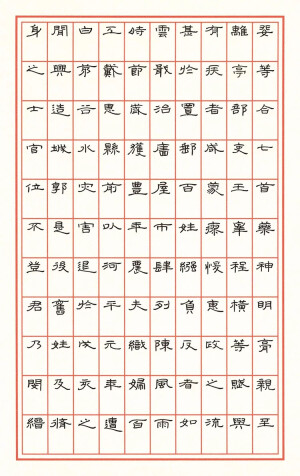 婓等合七首藥神明膏親至
離亭部吏王宰程橫等賦與
有疾者咸蒙瘳悛惠政之流
甚於置郵百姓繈負反者如
雲戢治廧屋市肆列陳風雨
時節歲獲豐年農夫織婦百
工戴恩縣前以河平元年遭
白茅谷水災害退於戌亥之
間興造城郭是後舊姓及脩
身之士官位不登君乃閔縉